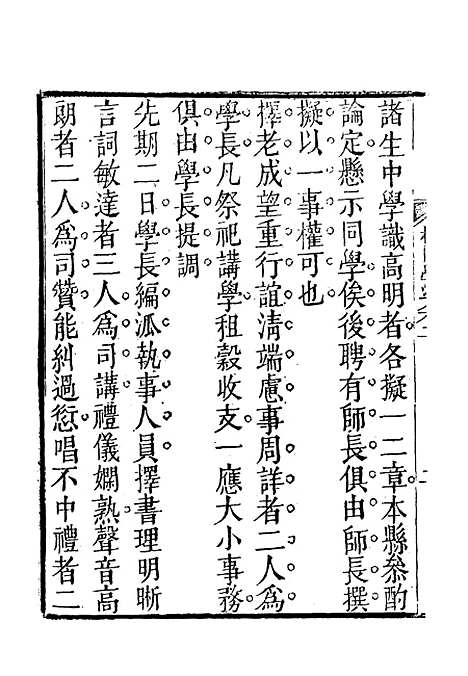 諸生中學識高明者各擬一二章本縣叅酌
論定懸示同學俟後聘有師長俱由師長撰
擬以一事權可也
擇老成望重行誼清端慮事周詳者二人爲
學長凡祭祀講學租穀收支一應大小事務
俱由學長提調
先期二日學長編派執事人員擇書理明晰
言詞敏達者三人爲司講禮儀嫻熟聲音高
朗者二人爲司贊能糾過愆唱不中禮者二